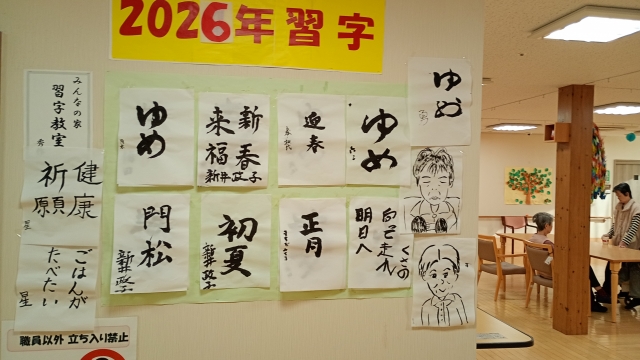 2026年習字
みんなの家
習字教室
秀
健康
祈願
星
ごはんが
たべたい
星
職員以外 立ち入り禁止
ゆめ
新春
来福
新井政子
迎春
ゆめ
ゆめ
門松
新井政子
初夏
新井政子
正月
明日へ